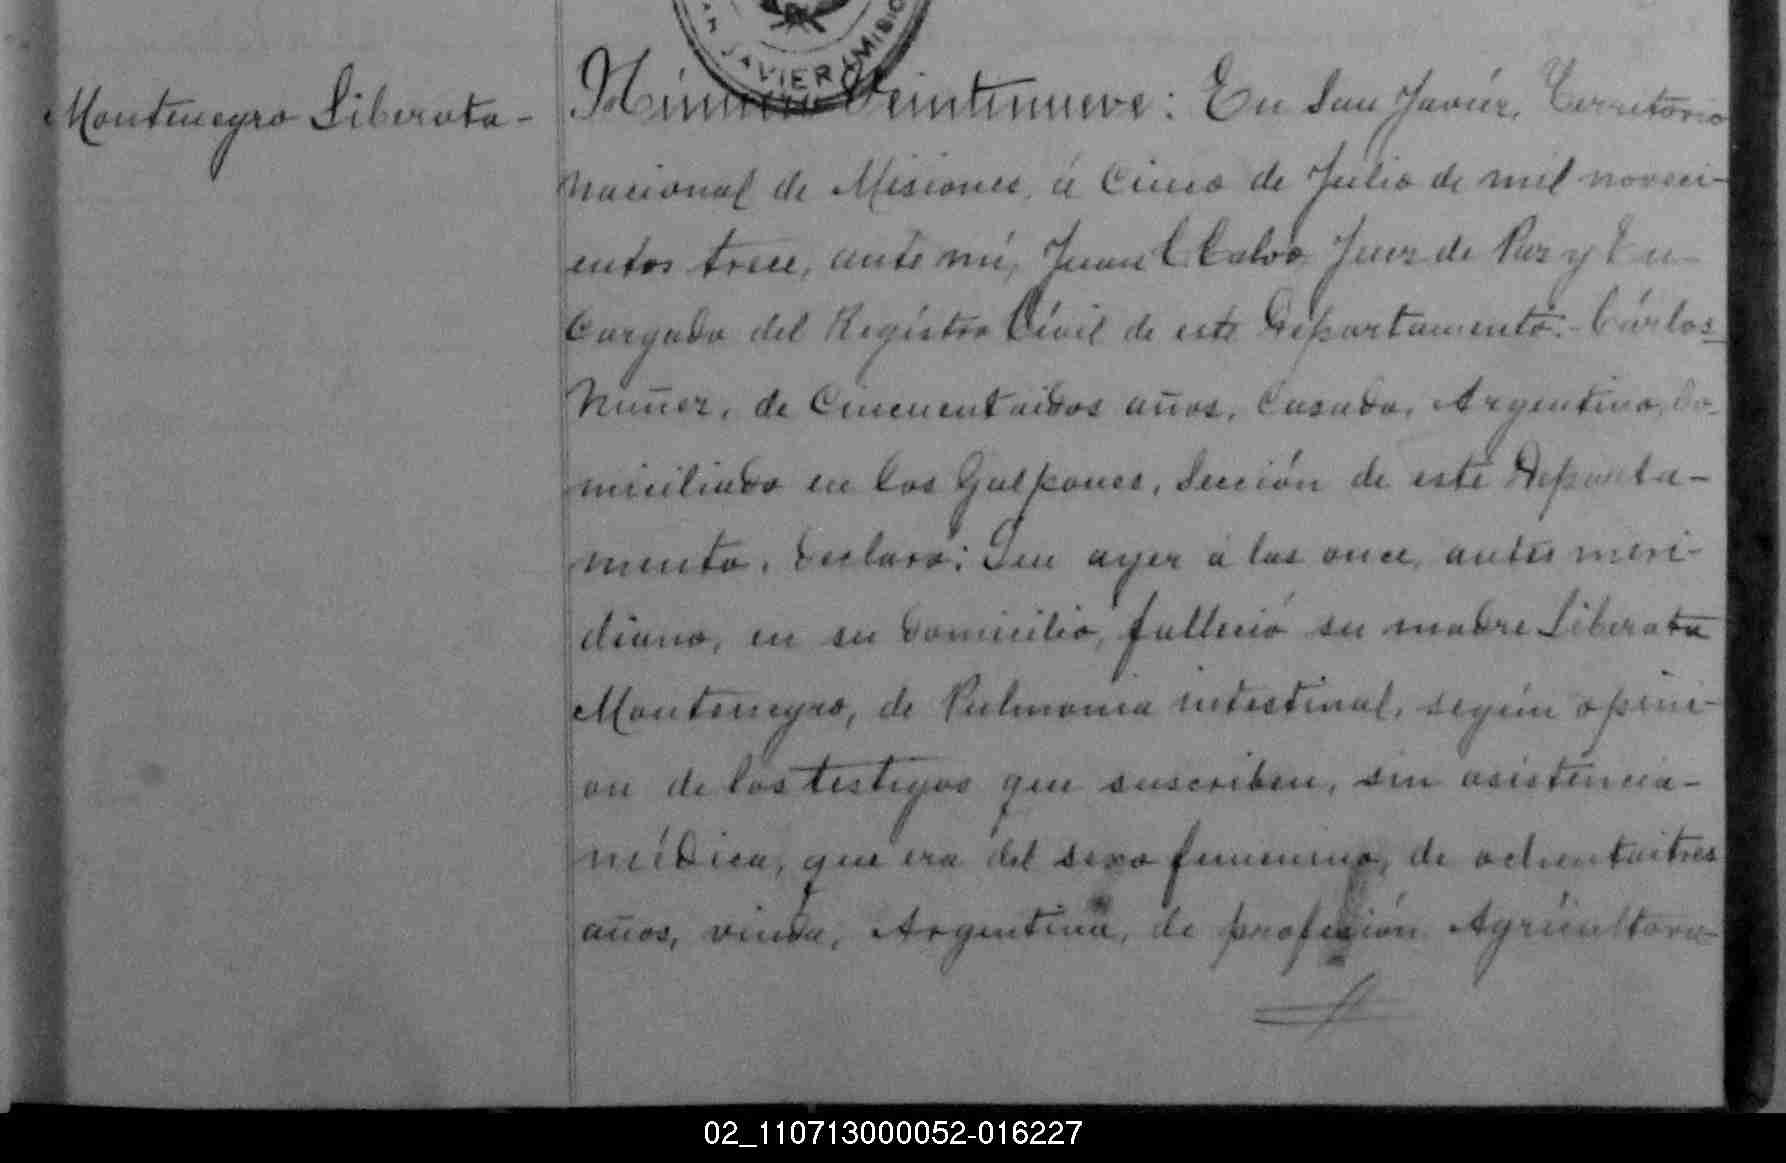 SAN JAVIER (MISIO
Montenegro Liberata-
Número Veintinueve: En San Javiér, Territorio
Nacional de Misiones, á Cinco de Julio de mil novesci-
entos trece, ante mí, Juan C. Calvo Juez de Paz y En-
Cargado del Registro Civil de este Departamento.- Cárlos
Nuñez, de Cincuentaidos años, Casado, Argentino, do-
miciliado en los Galpones, Sección de este Departa-
mento, Declaró: Que ayer á las once, antes meri-
diano, en su Domicilio, falleció su madre Liberata
Montenegro, de Pulmonia intestinal, según opini-
on de los testigos que suscriben, sin asistencia-
médica, que era del sexo femenino, de ochentaitres
años, viuda, Argentina, de profesión Agricultora-
02_110713000052-016227